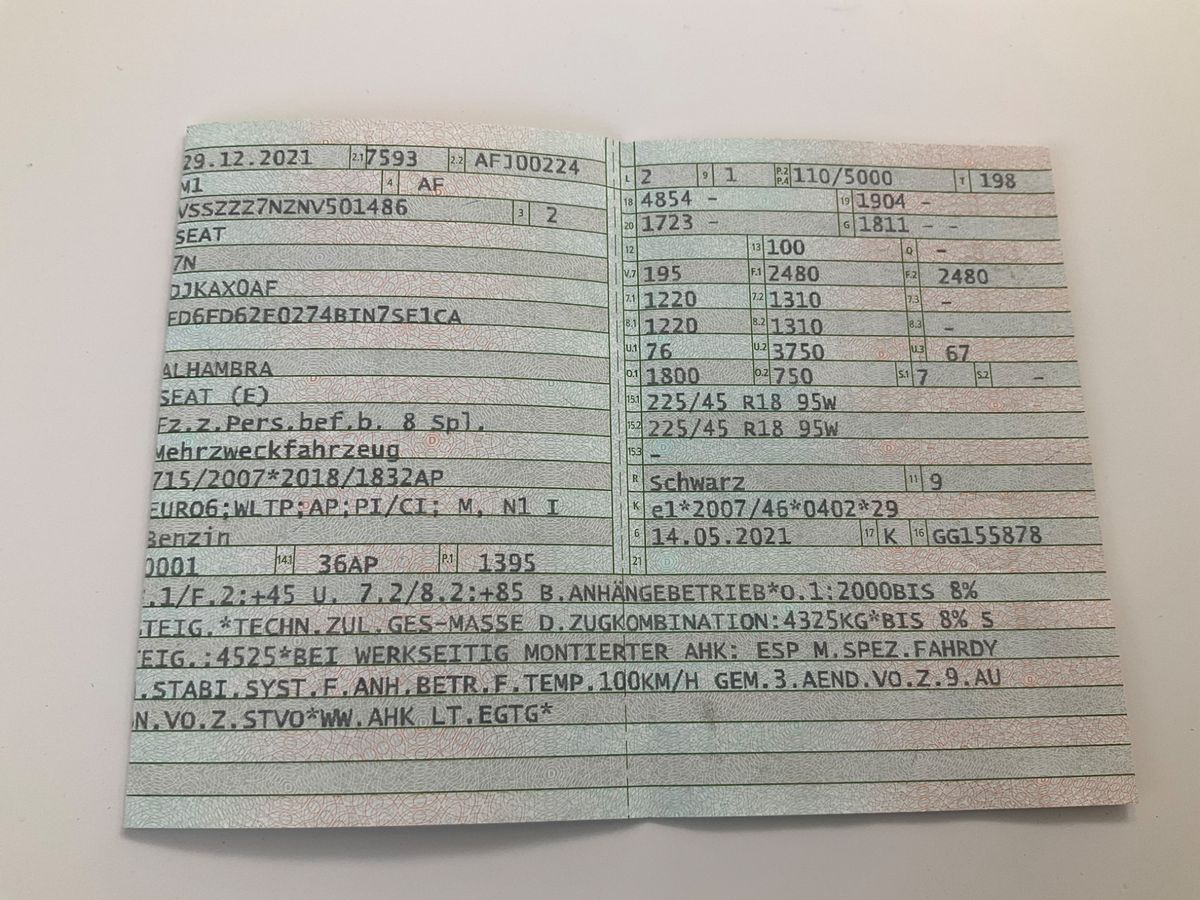 29.12.2021 2.1 7593 2.2 AFJ00224
M1 4 AF
VSSZZZ7NZNV501486 3 2
SEAT
7N
DJKAX0AF
FD6FD62E0274BIN7SE1CA
ALHAMBRA
SEAT (E)
Fz.z.Pers.bef.b. 8 Spl.
Mehrzweckfahrzeug
715/2007*2018/1832AP
EURO6;WLTP;AP;PI/CI; M, N1 I
Benzin
0001 14.1 36AP P.1 1395
L 2 9 1 P.2 P.4 110/5000 T 198
18 4854 – 19 1904 –
20 1723 – G 1811 – –
12 13 100 Q –
V.7 195 F.1 2480 F.2 2480
7.1 1220 7.2 1310 7.3 –
8.1 1220 8.2 1310 8.3 –
U.1 76 U.2 3750 U.3 67
O.1 1800 O.2 750 S.1 7 S.2 –
15.1 225/45 R18 95W
15.2 225/45 R18 95W
15.3 –
R Schwarz 11 9
K e1*2007/46*0402*29
6 14.05.2021 17 K 16 GG155878
21
.1/F.2:+45 U. 7.2/8.2:+85 B.ANHÄNGEBETRIEB*O.1:2000BIS 8%
STEIG.*TECHN.ZUL.GES-MASSE D.ZUGKOMBINATION:4325KG*BIS 8% S
EIG.:4525*BEI WERKSEITIG MONTIERTER AHK: ESP M.SPEZ.FAHRDY
.STABI.SYST.F.ANH.BETR.F.TEMP.100KM/H GEM.3.AEND.VO.Z.9.AU
N.VO.Z.STVO*WW.AHK LT.EGTG*